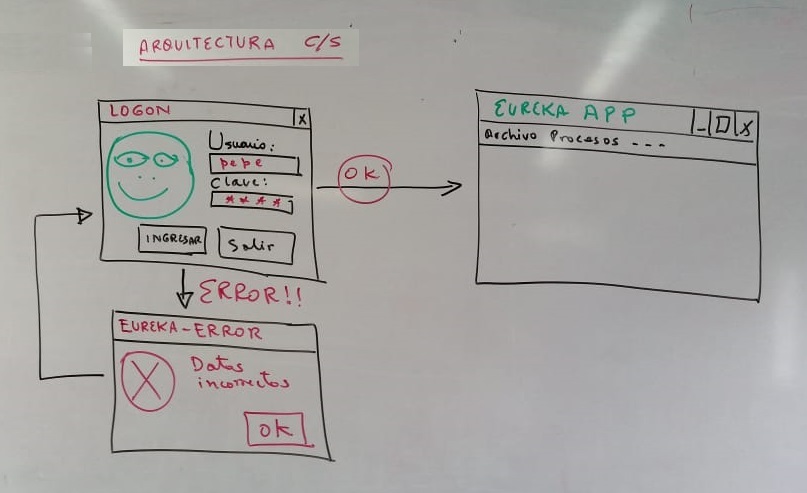 ARQUITECTURA C/S
LOGON X
Usuario:
pepe
Clave:
****
INGRESAR
Salir
OK
EUREKA APP _ □ X
Archivo Procesos ---
ERROR!!
EUREKA-ERROR
X
Datos
incorrectos
OK